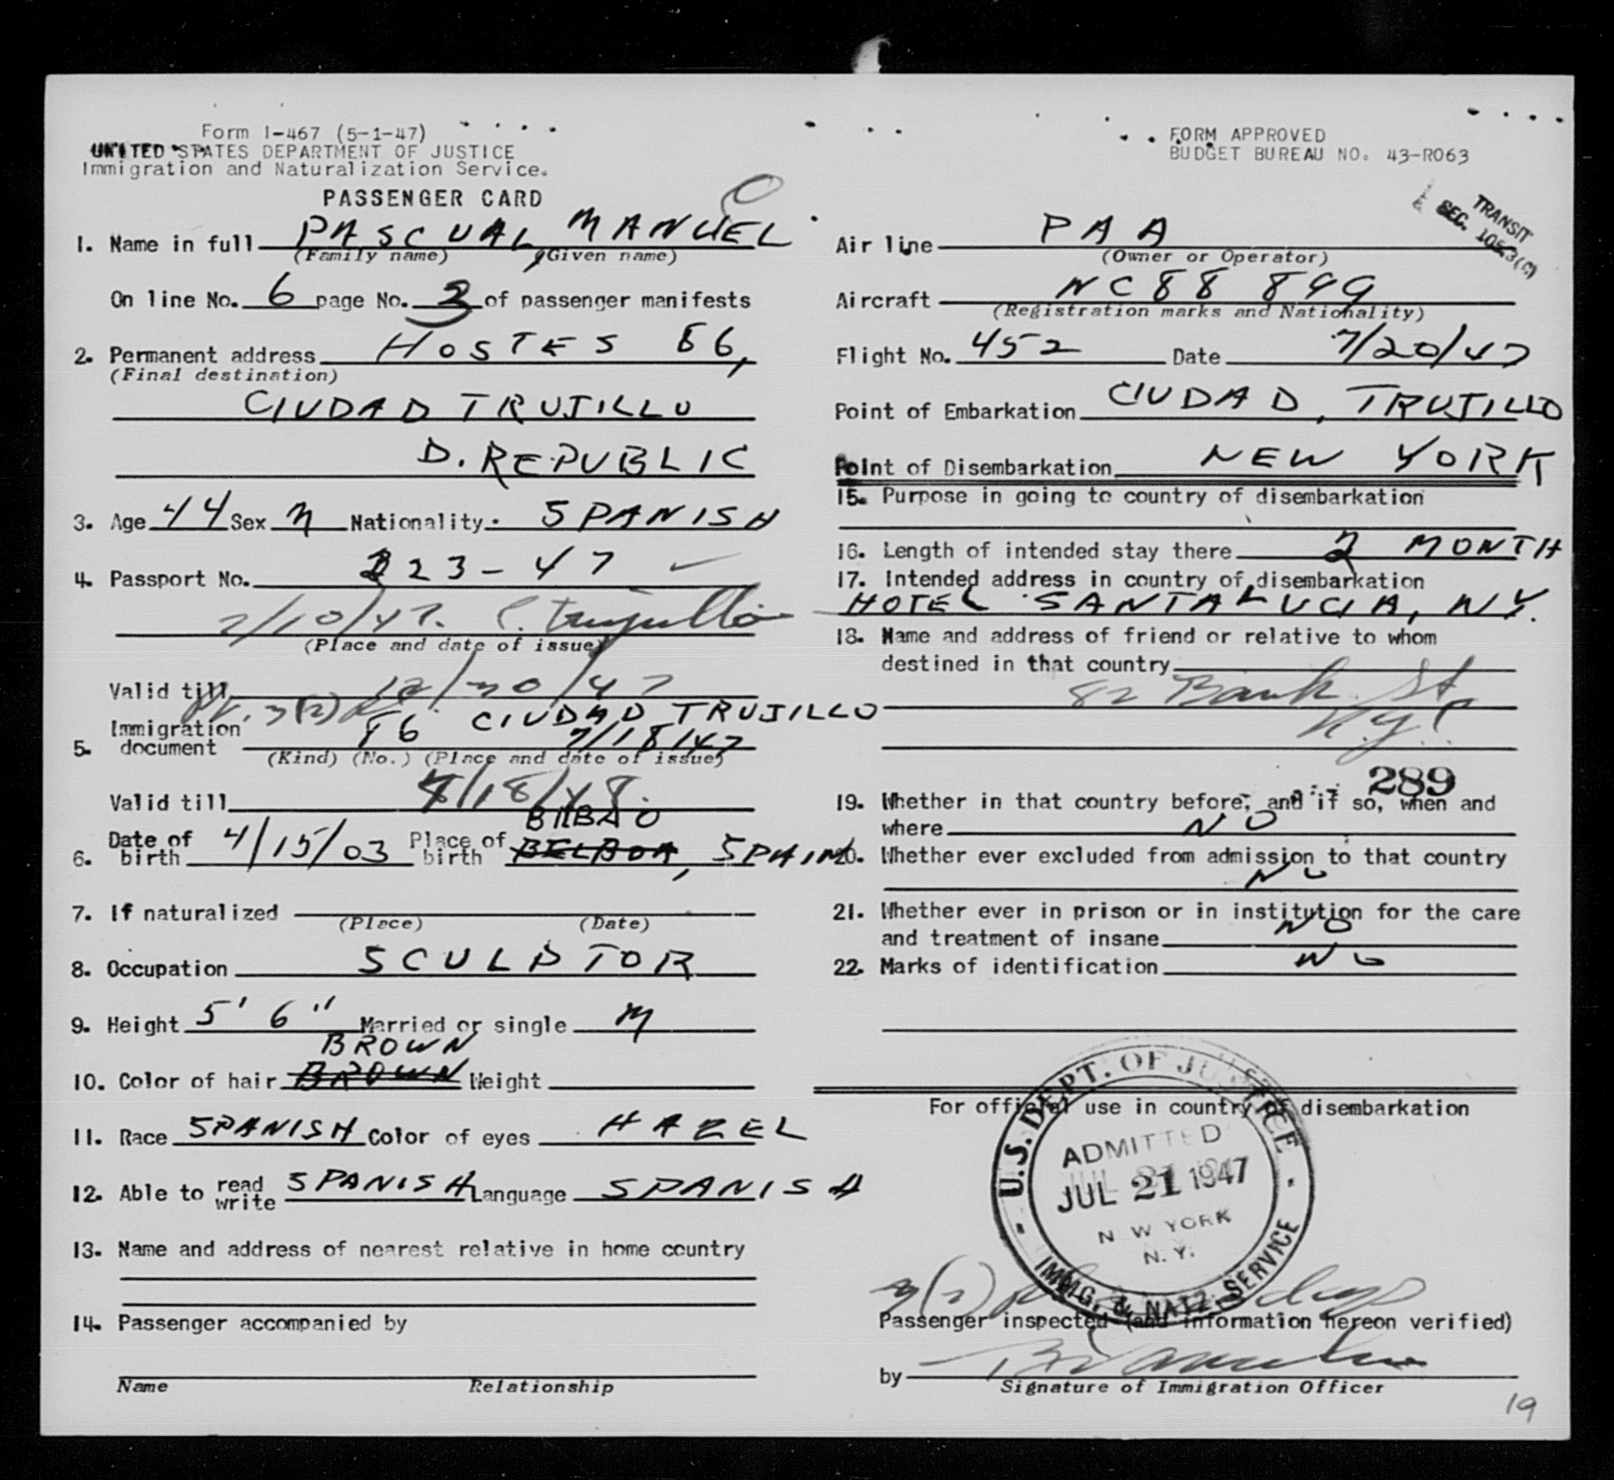 Form I-467 (5-1-47)
UNITED STATES DEPARTMENT OF JUSTICE
Immigration and Naturalization Service.
PASSENGER CARD
1. Name in full PASCUAL, MANUEL
(Family name) (Given name)
On line No. 6 page No. 3 of passenger manifests
2. Permanent address HOSTES 86,
(Final destination)
CIUDAD TRUJILLO
D. REPUBLIC
3. Age 44 Sex M Nationality. SPANISH
4. Passport No. 223-47
2/10/47. C. Trujillo
(Place and date of issue)
Valid till 12/30/47
Immigration 86 CIUDAD TRUJILLO
5. document 7/18/47
(Kind) (No.) (Place and date of issue)
Valid till 7/18/48.
BILBAO
6. Date of birth 4/15/03 Place of birth BELBOA, SPAIN
7. If naturalized
(Place) (Date)
8. Occupation SCULPTOR
9. Height 5' 6" Married or single M
BROWN
10. Color of hair BROWN Weight
11. Race SPANISH Color of eyes HAZEL
12. Able to read write SPANISH Language SPANISH
13. Name and address of nearest relative in home country
14. Passenger accompanied by
Name Relationship
FORM APPROVED
BUDGET BUREAU NO. 43-R063
TRANSIT
SEC.
Air line PAA
(Owner or Operator)
Aircraft NC88 899
(Registration marks and Nationality)
Flight No. 452 Date 7/20/47
Point of Embarkation CIUDAD, TRUJILLO
Point of Disembarkation NEW YORK
15. Purpose in going to country of disembarkation
16. Length of intended stay there 2 MONTH
17. Intended address in country of disembarkation
HOTEL SANTA LUCIA, NY.
18. Name and address of friend or relative to whom
destined in that country
82 Bank St.
N.Y.C.
289
19. Whether in that country before, and if so, when and
where NO
20. Whether ever excluded from admission to that country
NO
21. Whether ever in prison or in institution for the care
and treatment of insane NO
22. Marks of identification NO
For official use in country of disembarkation
U.S. DEPT. OF JUSTICE
ADMITTED
JUL 21 1947
N W YORK
N.Y.
IMMIG. & NATZ. SERVICE
Passenger inspected (and information hereon verified)
by
Signature of Immigration Officer
19